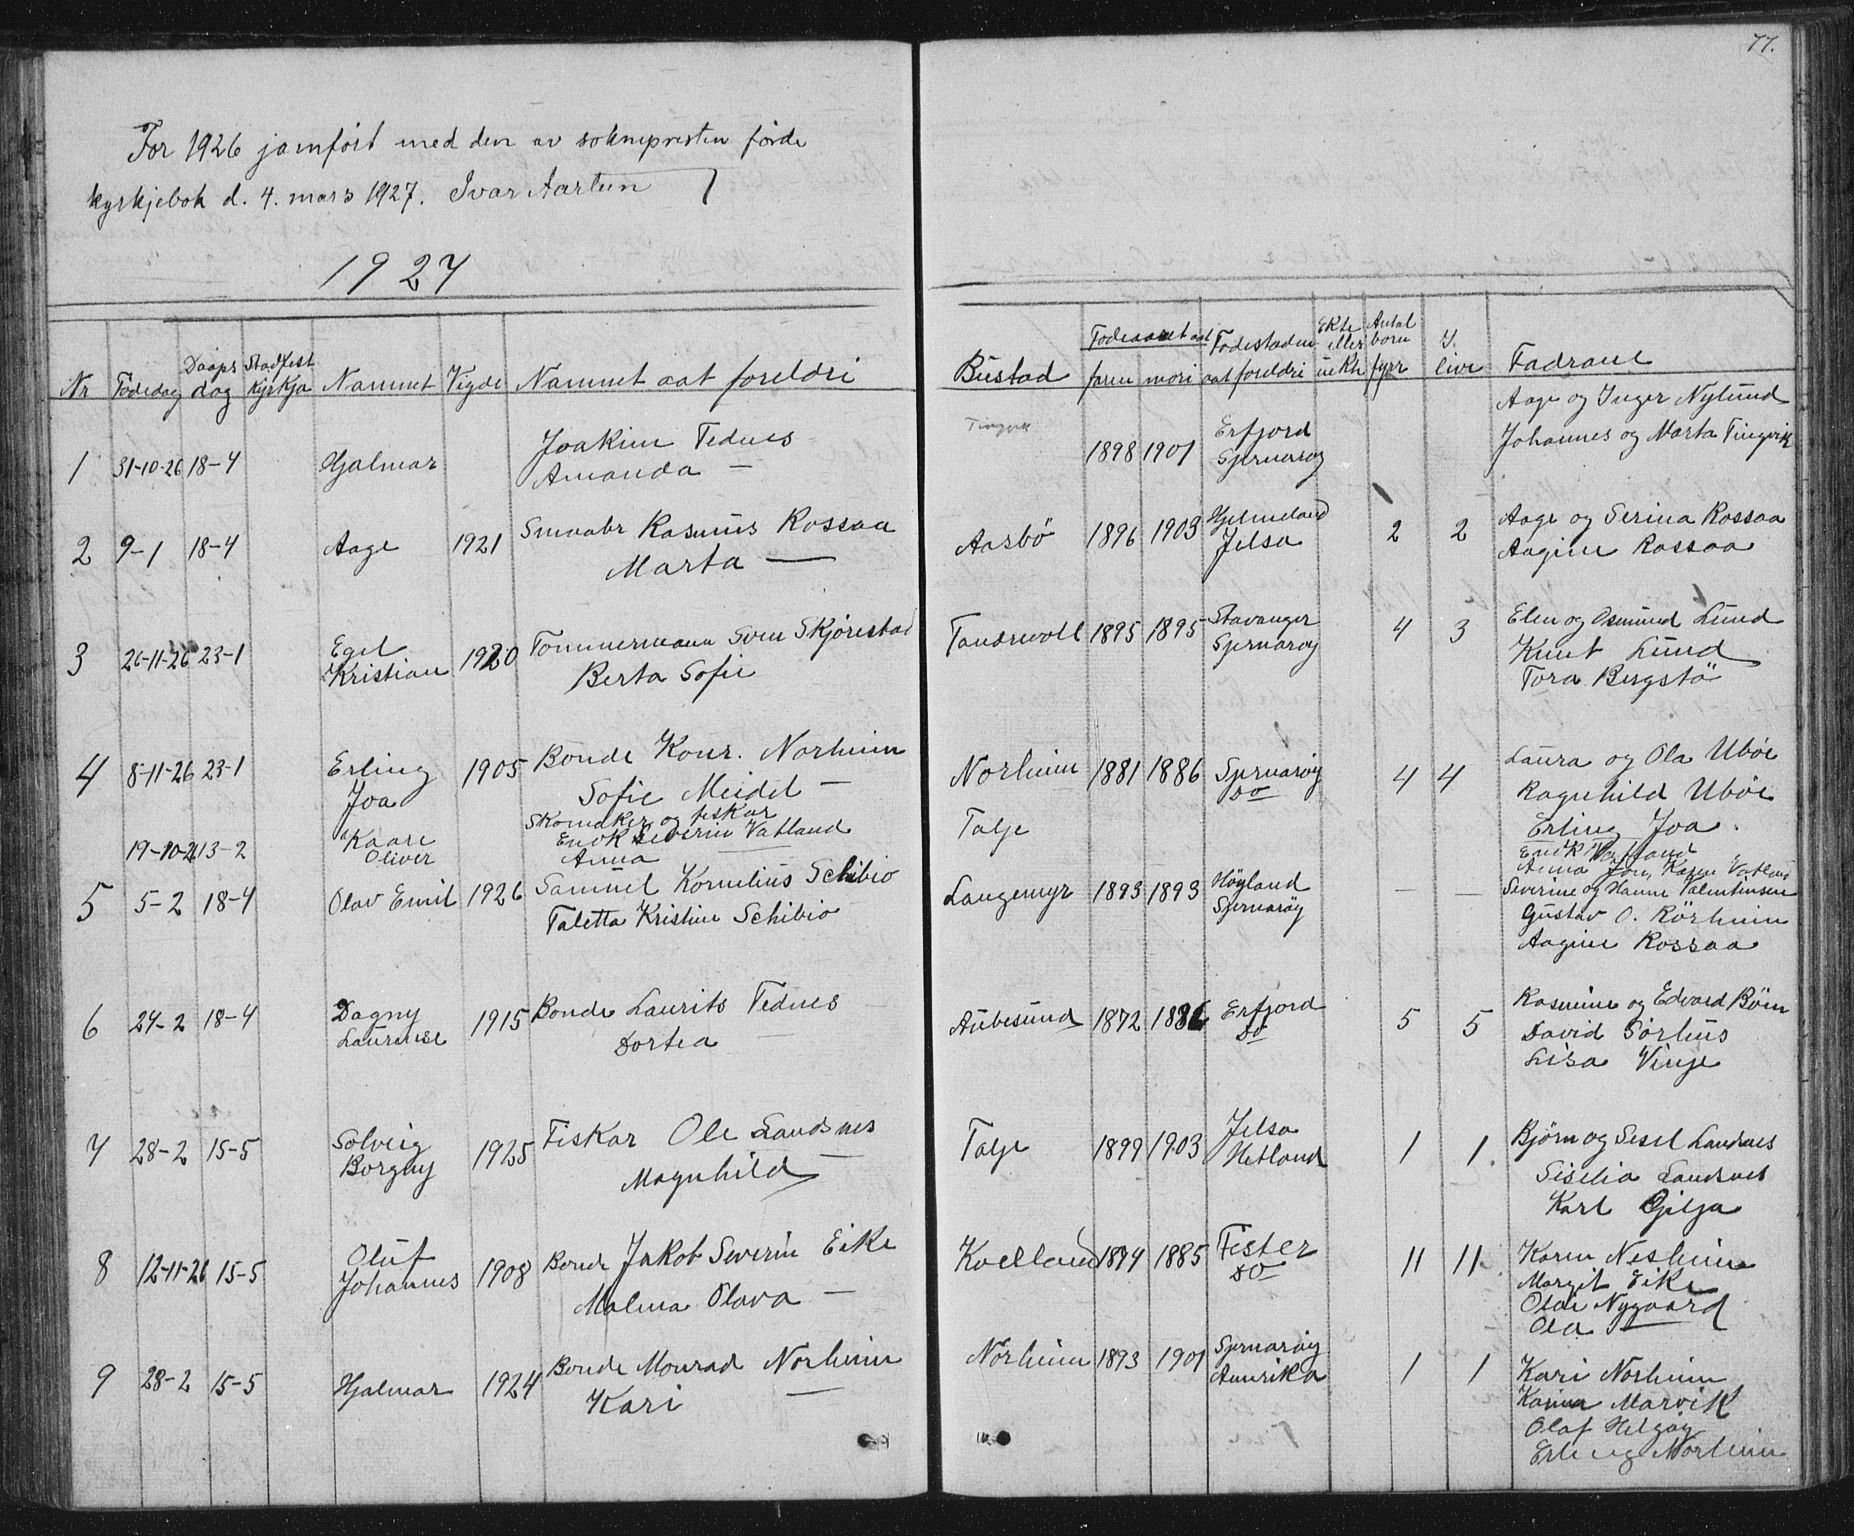 77.
For 1926 jamført med den av soknepresten førde
kyrkjebok d. 4. mars 1927. Ivar Aartun
1927
Nr Fødedag Daapsdag Stadfest kyrkja Namnet Vigde Namnet aat foreldri Bustad Fødeaaret aat faren mori Fødestaden aat foreldri Ekte eller uekte Antal born fyrr I live Fadrane
Aage og Inger Nylund
1 31-10-26 18-4 Hjalmar Joakim Tednes Tingvik 1898 1901 Erfjord Johannes og Marta Tingvik
Amanda — Sjernarøy
2 9-1 18-4 Aage 1921 Smaabr Rasmus Rossaa Aasbö 1896 1903 Hjelmeland 2 2 Aage og Serina Rossaa
Marta — Jelsa Aagine Rossaa
3 26-11-26 23-1 Egil 1920 Tømmermann Sven Skjørestad 1895 1895 Stavanger 4 3 Elen og Osmund Lund
Kristian Berta Sofie Sjernarøy Knut Lund
Tora Bergstö
4 8-11-26 23-1 Erling 1905 Bonde Konr. Norheim Norheim 1881 1886 Sjernarøy 4 4 Laura og Ola Ubøe
Joa Sofie Meidel — do Ragnhild Ubøe
Skomaker og fiskar Erling Joa
19-10-26 13-2 Kaare Enok Severin Vatland Talje Enok Vatland
Oliver Anna — Anna Joa, Karen Vatland
5 5-2 18-4 Olav Emil 1926 Samuel Kornelius Schibio Langemyr 1893 1893 Høyland — — Severine og Hanne Valentinsen
Taletta Kristine Schibio Sjernarøy Gustav O. Rörheim
Aagine Rossaa
6 24-2 18-4 Dagny 1915 Bonde Laurits Tednes Aubesund 1872 1886 Erfjord 5 5 Rasmine og Edvard Bøen
Laurense Dortea — do David Sørhus
Lisa Vinje
7 28-2 15-5 Solveig 1925 Fiskar Ole Landsnes Talje 1899 1903 Jelsa 1 1 Bjørn og Sesel Landsnes
Borgny Magnhild — Hetland Siselia Landsnes
Karl Gilja
8 12-11-26 15-5 Oluf 1908 Bonde Jakob Severin Eike Kvelland 1874 1885 Fister 11 11 Karen Nesheim
Johannes Malena Olava — do Margit Eike
Olav Nygaard
Ola —
9 28-2 15-5 Hjalmar 1924 Bonde Monrad Norheim Norheim 1893 1901 Sjernarøy 1 1 Kari Norheim
Kari — Amerika Karina Marvik
Olaf Helgøy
Erling Norheim